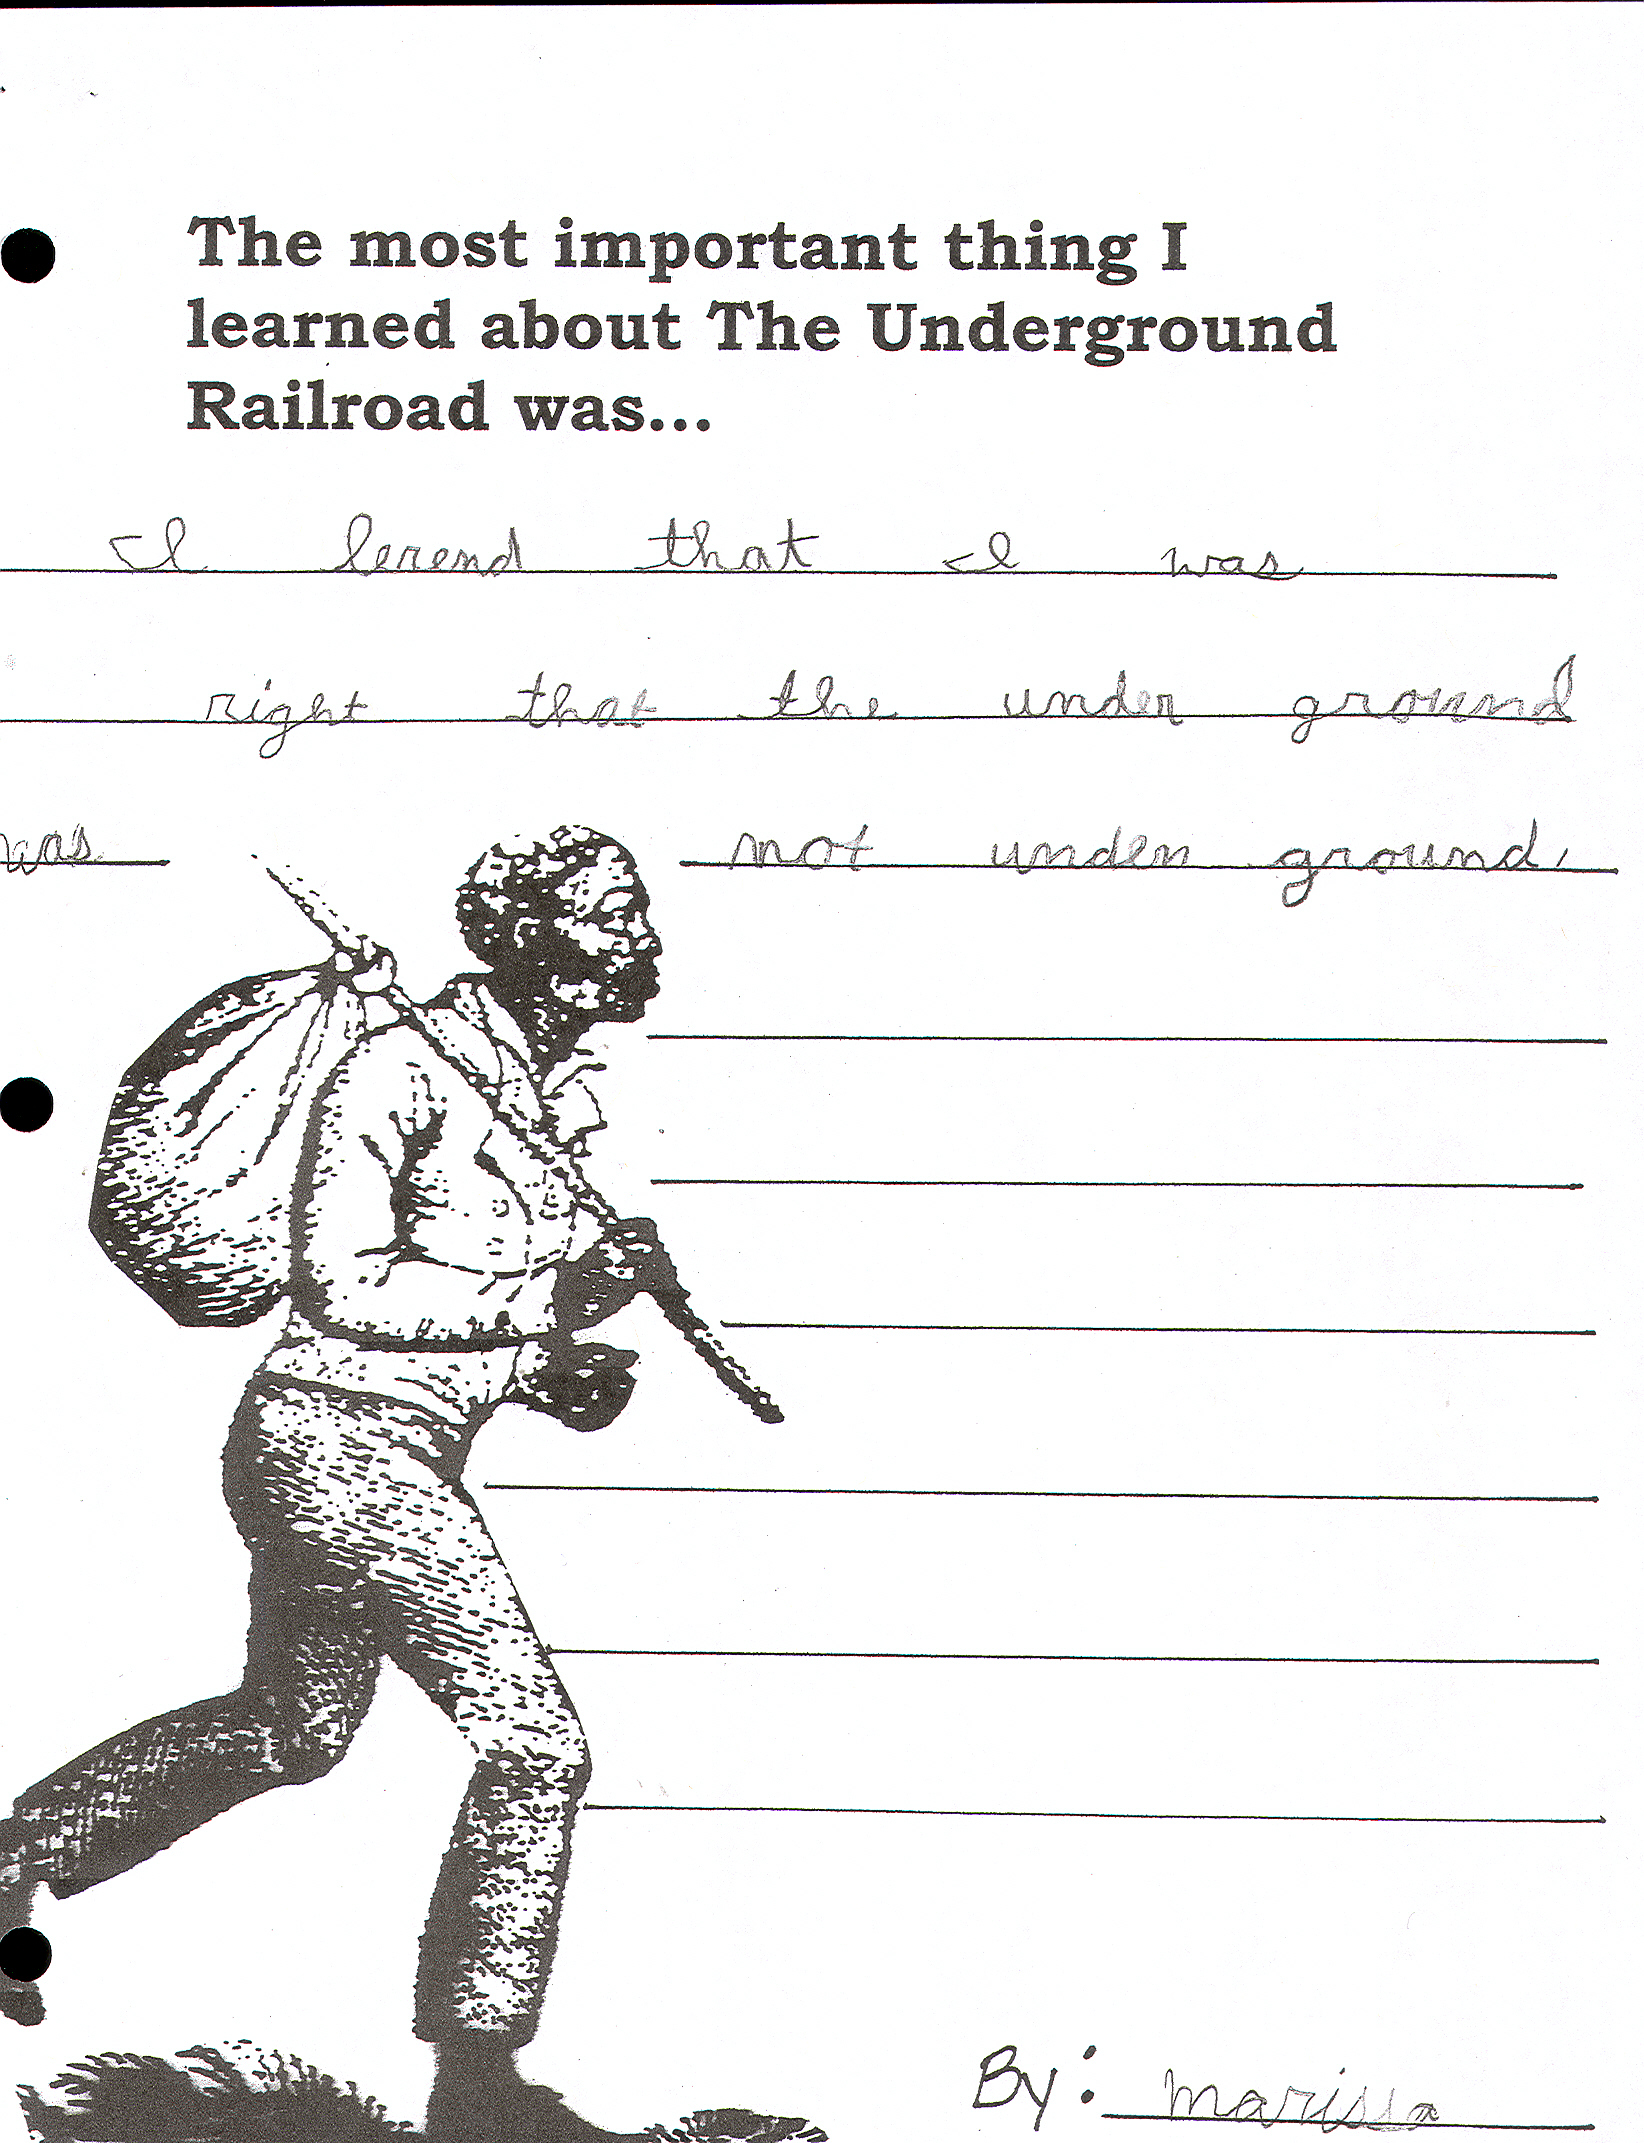 The most important thing I
learned about The Underground
Railroad was...
I lerend that I was
right that the under ground
was not under ground.
By: marissa